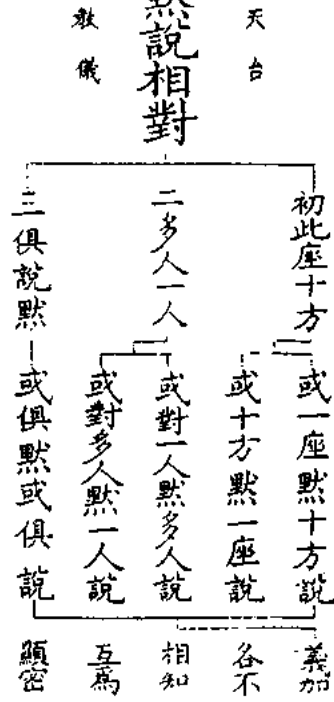 天台
默說相對
教儀
初此座十方
或一座默十方說
或十方默一座說
二多人一人
或對一人默多人說
或對多人默一人說
三俱說默
或俱默或俱說
義加
各不
相知
互為
顯密